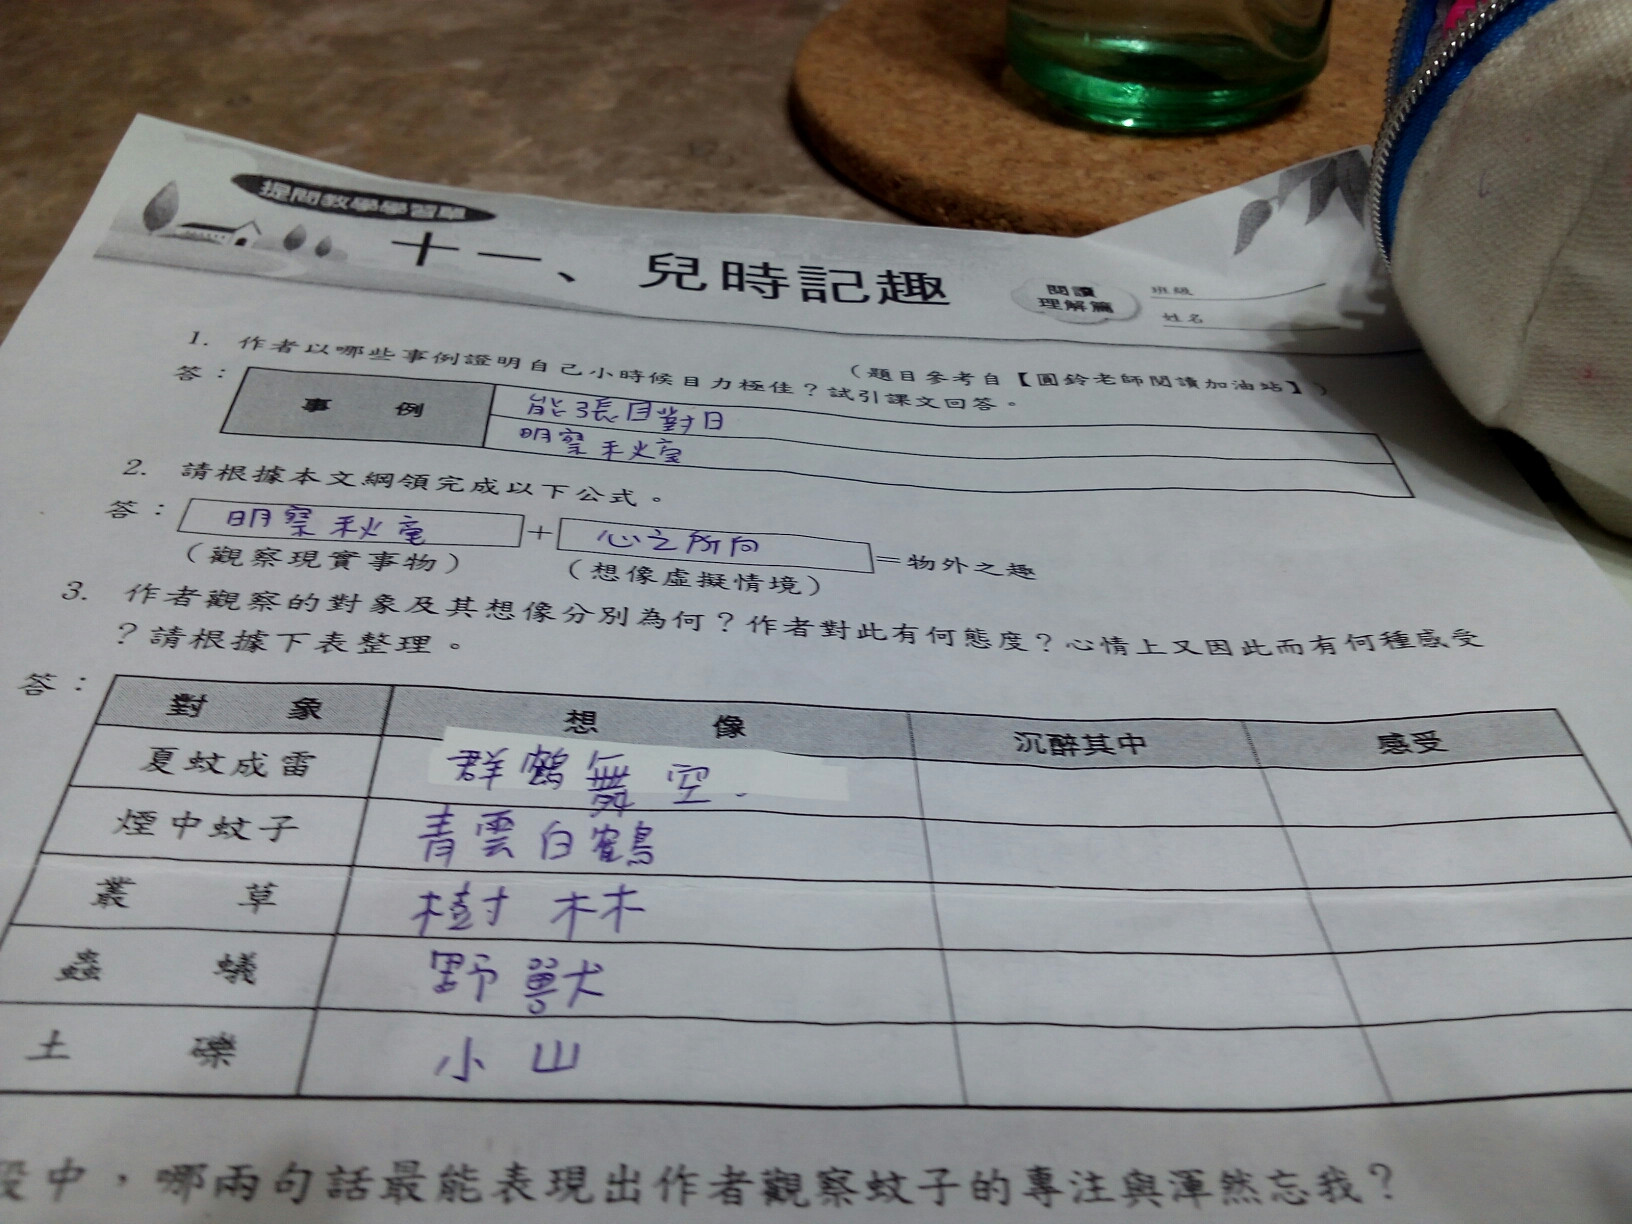 提問教學學習單
十一、兒時記趣
閱讀
理解篇
班級
姓名
(題目參考自【圓鈴老師閱讀加油站】)
1. 作者以哪些事例證明自己小時候目力極佳？試引課文回答。
答：
事例
能張目對日
明察秋毫
2. 請根據本文綱領完成以下公式。
答：明察秋毫+心之所向=物外之趣
(觀察現實事物) (想像虛擬情境)
3. 作者觀察的對象及其想像分別為何？作者對此有何態度？心情上又因此而有何種感受
？請根據下表整理。
答：
對象 想像 沉醉其中 感受
夏蚊成雷 群鶴舞空.
煙中蚊子 青雲白鶴
叢草 樹林
蟲蟻 野獸
土礫 小山
段中，哪兩句話最能表現出作者觀察蚊子的專注與渾然忘我？